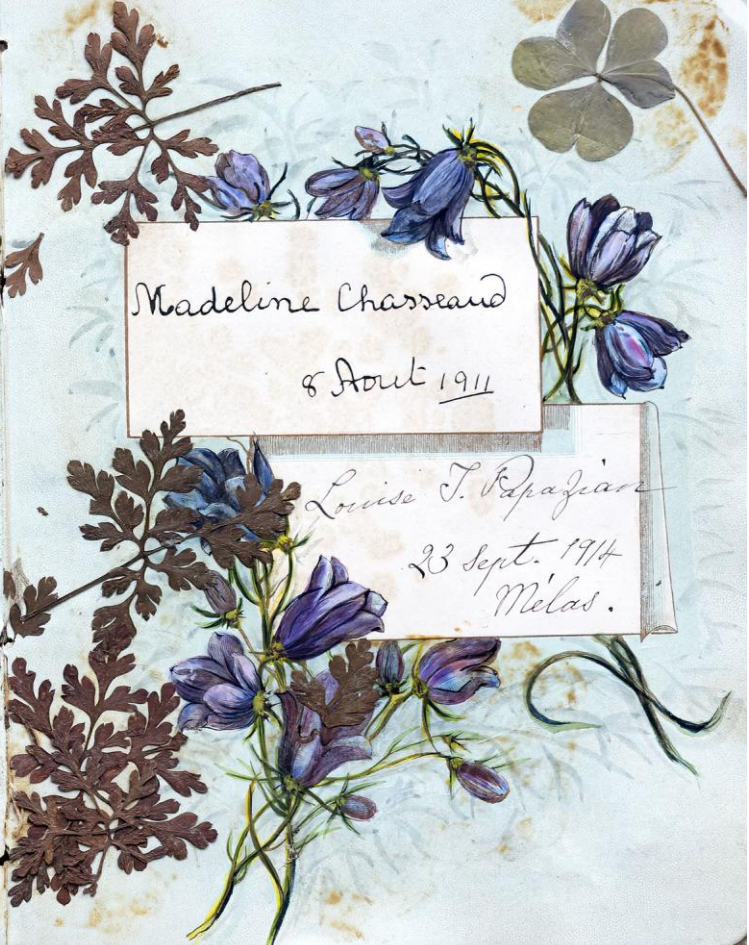 Madeline Chasseaud
8 Aout 1911
Louise T. Papazian
23 sept. 1914
Mélas.